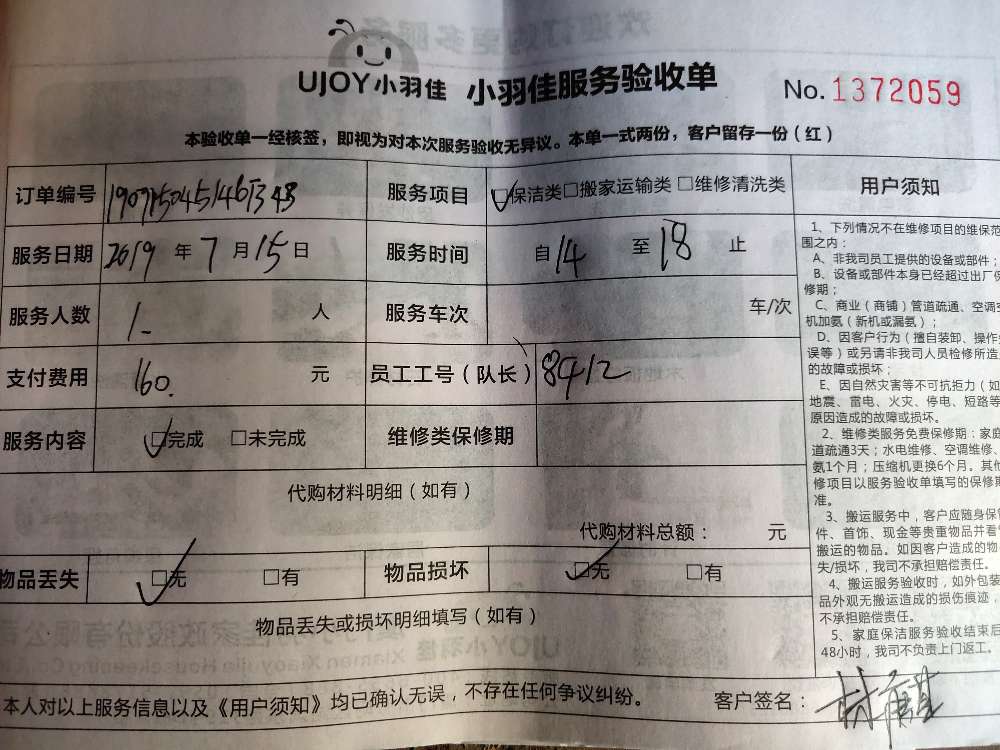 UJOY小羽佳 小羽佳服务验收单 No.1372059
本验收单一经核签，即视为对本次服务验收无异议。本单一式两份，客户留存一份（红）
订单编号 服务项目 □保洁类□搬家运输类□维修清洗类 用户须知
服务日期 2019 年 7 月 15 日 服务时间 自 14 至 18 止
服务人数 1 人 服务车次 车/次
支付费用 160. 元 员工工号（队长） 8412
服务内容 □完成 □未完成 维修类保修期
代购材料明细（如有）
代购材料总额： 元
物品丢失 □无 □有 物品损坏 □无 □有
物品丢失或损坏明细填写（如有）
本人对以上服务信息以及《用户须知》均已确认无误，不存在任何争议纠纷。 客户签名：
1、下列情况不在维修项目的维保范
围之内：
A、非我司员工提供的设备或部件；
B、设备或部件本身已经超过出厂保
修期；
C、商业（商铺）管道疏通、空调空
机加氨（新机或漏氨）；
D、因客户行为（擅自装卸、操作
误等）或另请非我司人员检修所造
的故障或损坏；
E、因自然灾害等不可抗拒力（如
地震、雷电、火灾、停电、短路等
原因造成的故障或损坏。
2、维修类服务免费保修期：家庭
道疏通3天；水电维修、空调维修、
氨1个月；压缩机更换6个月。其他
修项目以服务验收单填写的保修期
准。
3、搬运服务中，客户应随身保管
件、首饰、现金等贵重物品并看
搬运的物品。如因客户造成的物
失/损坏，我司不承担赔偿责任。
4、搬运服务验收时，如外包装
品外观无搬运造成的损伤痕迹，
不承担赔偿责任。
5、家庭保洁服务验收结束后
48小时，我司不负责上门返工。